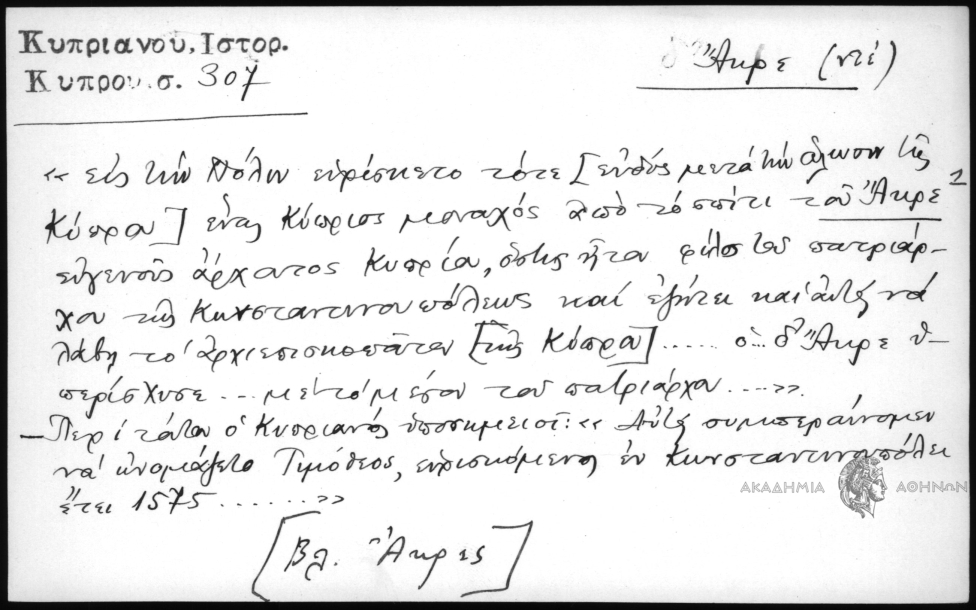 Κυπριανού, Ιστορ.
Κυπρου. σ. 307
δ' Ἄκρε (ντέ)
« εἰς τὴν Πόλιν εὑρίσκετο τότε [εὐθὺς μετὰ τὴν ἅλωσιν τῆς
Κύπρου] ἕνας Κύπριος μοναχὸς ἀπὸ τὸ σπίτι τοῦ Ἄκρε 1
εὐγενοῦς ἄρχοντος Κυπρίου, ὅστις ἦτο φίλος τοῦ πατριάρ-
χου τῆς Κωνσταντινουπόλεως καὶ ἐζήτει καὶ αὐτὸς νὰ
λάβῃ τὸ ἀρχιεπισκοπάτον [τῆς Κύπρου] ..... ὁ.. δ' Ἄκρε ὑ-
περίσχυσε ... μὲ τὸ μέσον τοῦ πατριάρχου .... ».
– Περὶ τούτου ὁ Κυπριανὸς ὑποσημειοῖ: « Αὐτὸς συμπεραίνομεν
νὰ ὠνομάζετο Τιμόθεος, εὑρισκόμενος ἐν Κωνσταντινουπόλει
ἔτει 1575 ...... »
ΑΚΑΔΗΜΙΑ ΑΘΗΝΩΝ
[Βλ. Ἄκρες]